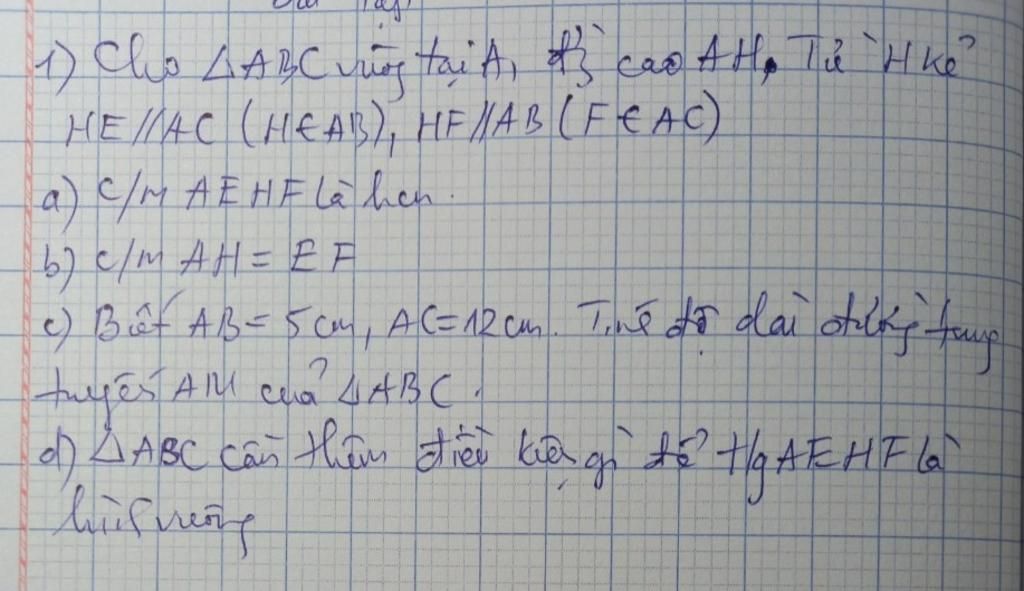 1) Cho △ABC vuông tại A, đg cao AH, Từ H kẻ
HE//AC (H∈AB), HF//AB (F∈AC)
a) C/m AEHF là hcn.
b) C/m AH = EF
c) Biết AB = 5cm, AC = 12cm. Tính độ dài đường trung
tuyến AM của △ABC.
d) △ABC cần thêm điều kiện gì để tg AEHF là
hình vuông